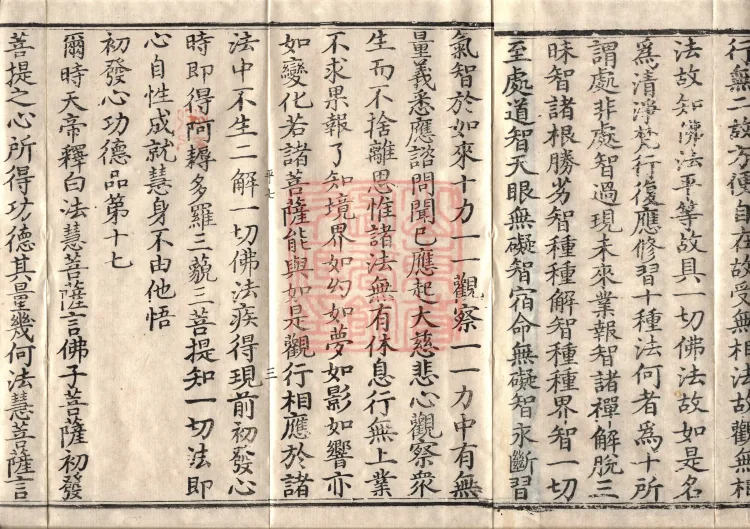 行無二故方便自在故受無相法故觀無相
法故知佛法平等故具一切佛法故如是名
為清淨梵行復應修習十種法何者為十所
謂處非處智過現未來業報智諸禪解脫三
昧智諸根勝劣智種種解智種種界智一切
至處道智天眼無礙智宿命無礙智永斷習
氣智於如來十力一一觀察一一力中有無
量義悉應諮問聞已應起大慈悲心觀察眾
生而不捨離思惟諸法無有休息行無上業
不求果報了知境界如幻如夢如影如響亦
如變化若諸菩薩能與如是觀行相應於諸
平七 三
法中不生二解一切佛法疾得現前初發心
時即得阿耨多羅三藐三菩提知一切法即
心自性成就慧身不由他悟
初發心功德品第十七
爾時天帝釋白法慧菩薩言佛子菩薩初發
菩提之心所得功德其量幾何法慧菩薩言